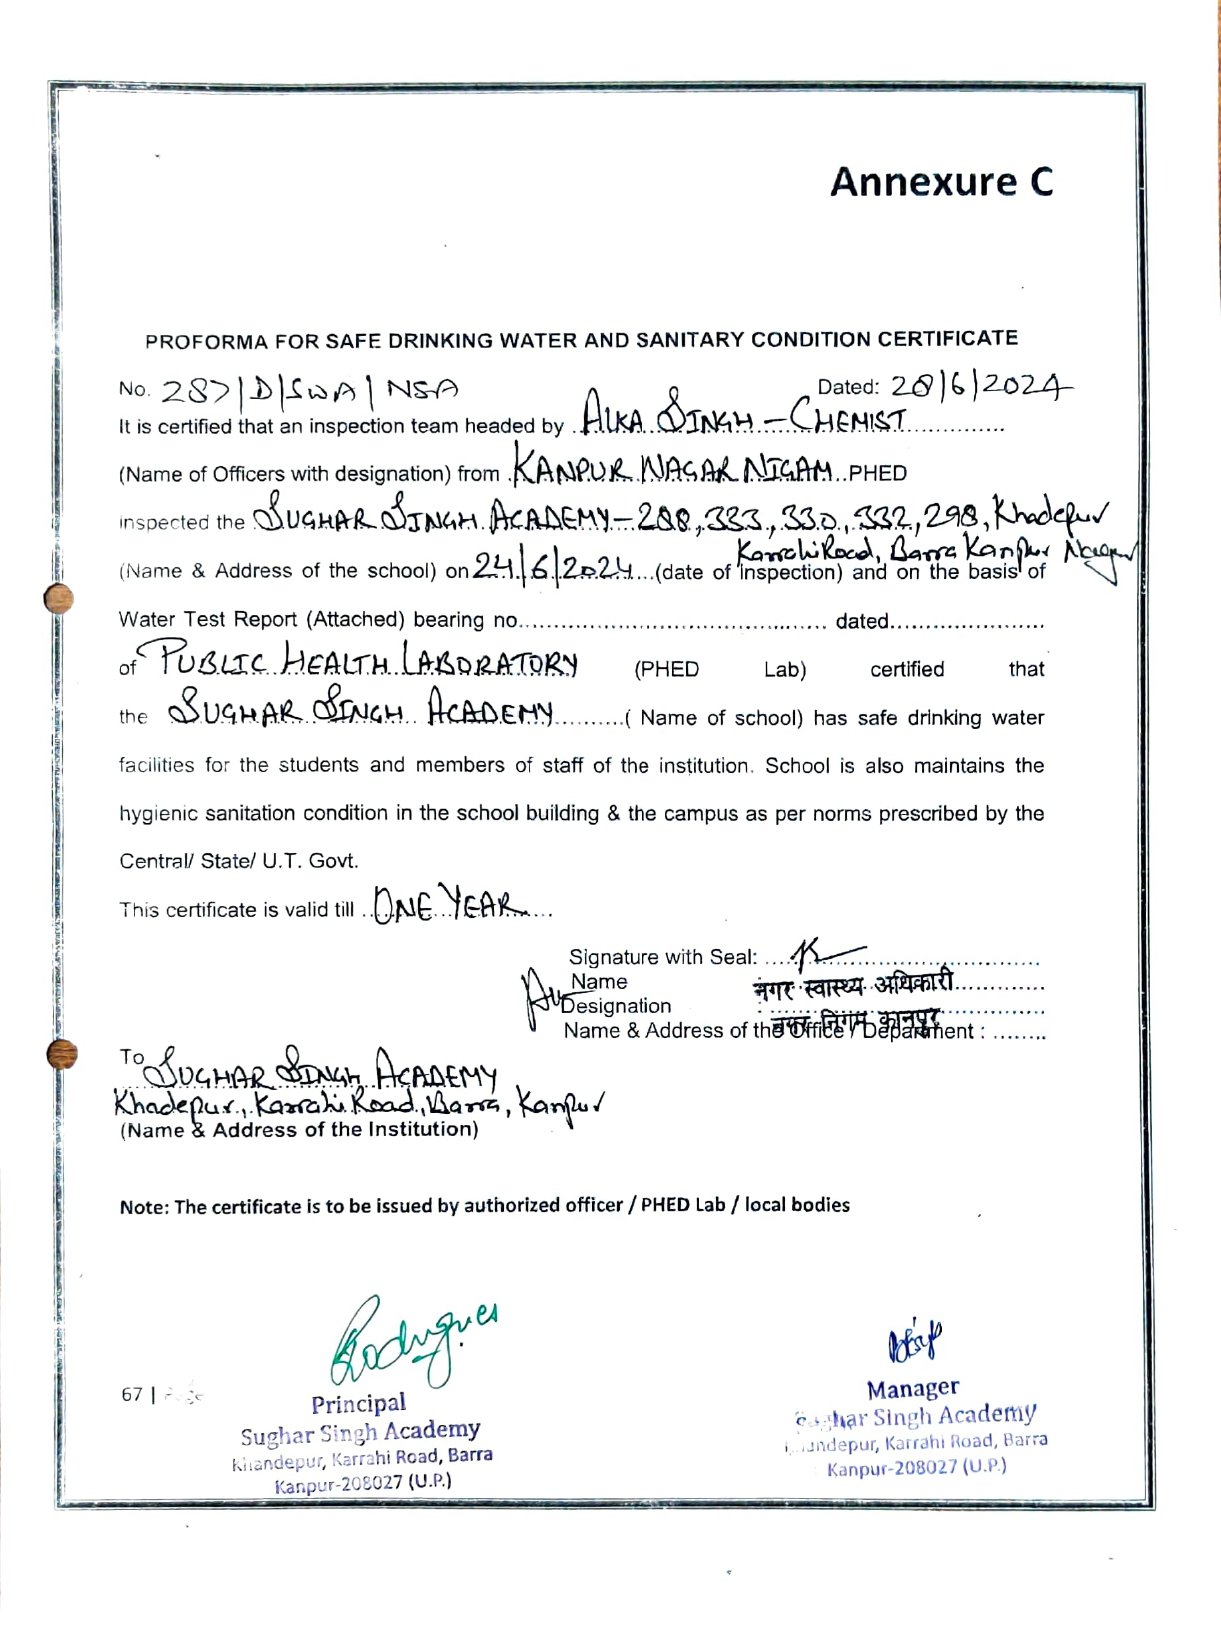 Annexure C
PROFORMA FOR SAFE DRINKING WATER AND SANITARY CONDITION CERTIFICATE
No. 287|D|SWA|NSA Dated: 28|6|2024
It is certified that an inspection team headed by ..ALKA SINGH – CHEMIST...............
(Name of Officers with designation) from .KANPUR NAGAR NIGAM..PHED
inspected the .SUGHAR SINGH ACADEMY – 288, 333, 330, 332, 298, Khadepur
Karrahi Road, Barra Kanpur Nagar
(Name & Address of the school) on 24/6/2024...(date of inspection) and on the basis of
Water Test Report (Attached) bearing no............................................. dated......................
of PUBLIC HEALTH LABORATORY (PHED Lab) certified that
the SUGHAR SINGH ACADEMY..........( Name of school) has safe drinking water
facilities for the students and members of staff of the institution. School is also maintains the
hygienic sanitation condition in the school building & the campus as per norms prescribed by the
Central/ State/ U.T. Govt.
This certificate is valid till ..ONE YEAR.....
Signature with Seal: ........................................
Name
नगर स्वास्थ्य अधिकारी
Designation :
नगर निगम कानपुर
Name & Address of the Office / Department : ........
To
SUGHAR SINGH ACADEMY
Khadepur, Karrahi Road, Barra, Kanpur
(Name & Address of the Institution)
Note: The certificate is to be issued by authorized officer / PHED Lab / local bodies
Rodrigues
67 | Page
Principal
Sughar Singh Academy
Khandepur, Karrahi Road, Barra
Kanpur-208027 (U.P.)
Manager
Sughar Singh Academy
Khandepur, Karrahi Road, Barra
Kanpur-208027 (U.P.)